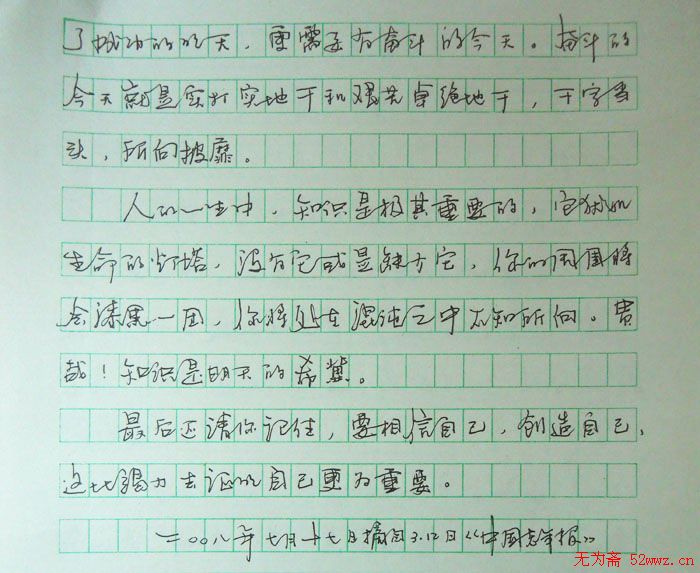 了成功的明天，更需要有奋斗的今天。奋斗的
今天就是实打实地干和艰苦卓绝地干，干字当
头，所向披靡。
人的一生中，知识是极其重要的，它犹如
生命的灯塔，没有它或是缺少它，你的周围将
会漆黑一团，你将处在混沌之中不知所向。贵
哉！知识是明天的希冀。
最后还请你记住，要相信自己，创造自己，
这比竭力去证明自己更为重要。
二〇〇八年七月十七日摘自3.12日《中国青年报》
无为斋 52wwz.cn